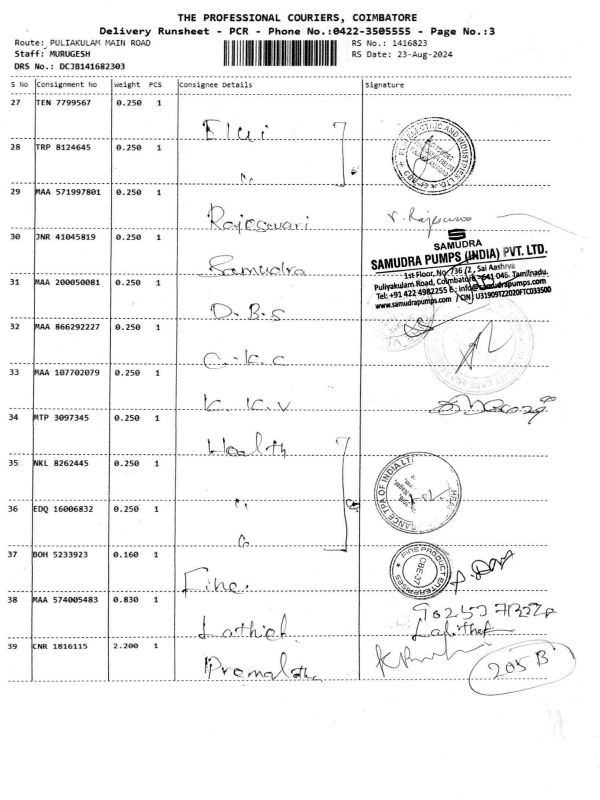 THE PROFESSIONAL COURIERS, COIMBATORE
Delivery Runsheet - PCR - Phone No.:0422-3505555 - Page No.:3
Route: PULIAKULAM MAIN ROAD RS No.: 1416823
Staff: MURUGESH RS Date: 23-Aug-2024
DRS No.: DCJB141682303
S No Consignment No Weight PCS Consignee Details Signature
27 TEN 7799567 0.250 1
28 TRP 8124645 0.250 1
29 MAA 571997801 0.250 1
Rajeswari
30 JNR 41045819 0.250 1
Samudra
SAMUDRA
SAMUDRA PUMPS (INDIA) PVT. LTD.
1st Floor, No 736 /2, Sai Aashrya
Puliyakulam Road, Coimbatore - 641 045. Tamilnadu.
Tel: +91 422 4982255 E: info@samudrapumps.com
www.samudrapumps.com / CIN: U31909TZ2020FTC033500
31 MAA 200050081 0.250 1
D.B.S
32 MAA 866292227 0.250 1
33 MAA 107702079 0.250 1
K.K.V
34 MTP 3097345 0.250 1
Health
35 NKL 8262445 0.250 1
36 EDQ 16006832 0.250 1
37 BOH 5233923 0.160 1
Fine.
FINE PRODUCT ENTERPRISES
CBE-37
38 MAA 574005483 0.830 1
Lathief
39 CNR 1816115 2.200 1
Premalatha
205 B